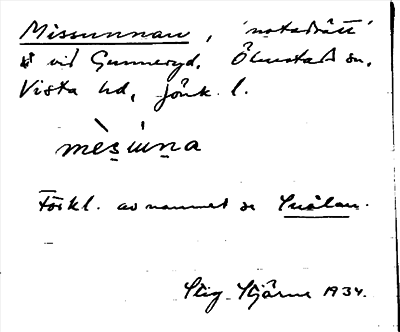 Missunnan, 'notadrätt'
vid Gunneryd. Ölmstad sn.
Vista hd, Jönk. l.
mèṣúṇa
Förkl. av namnet se Snålan.
Stig Stjärne 1934.